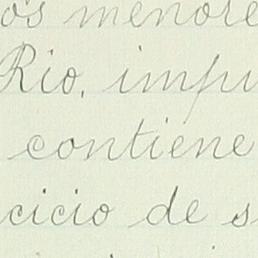 os menore
Rio, impu
contiene
cicio de s